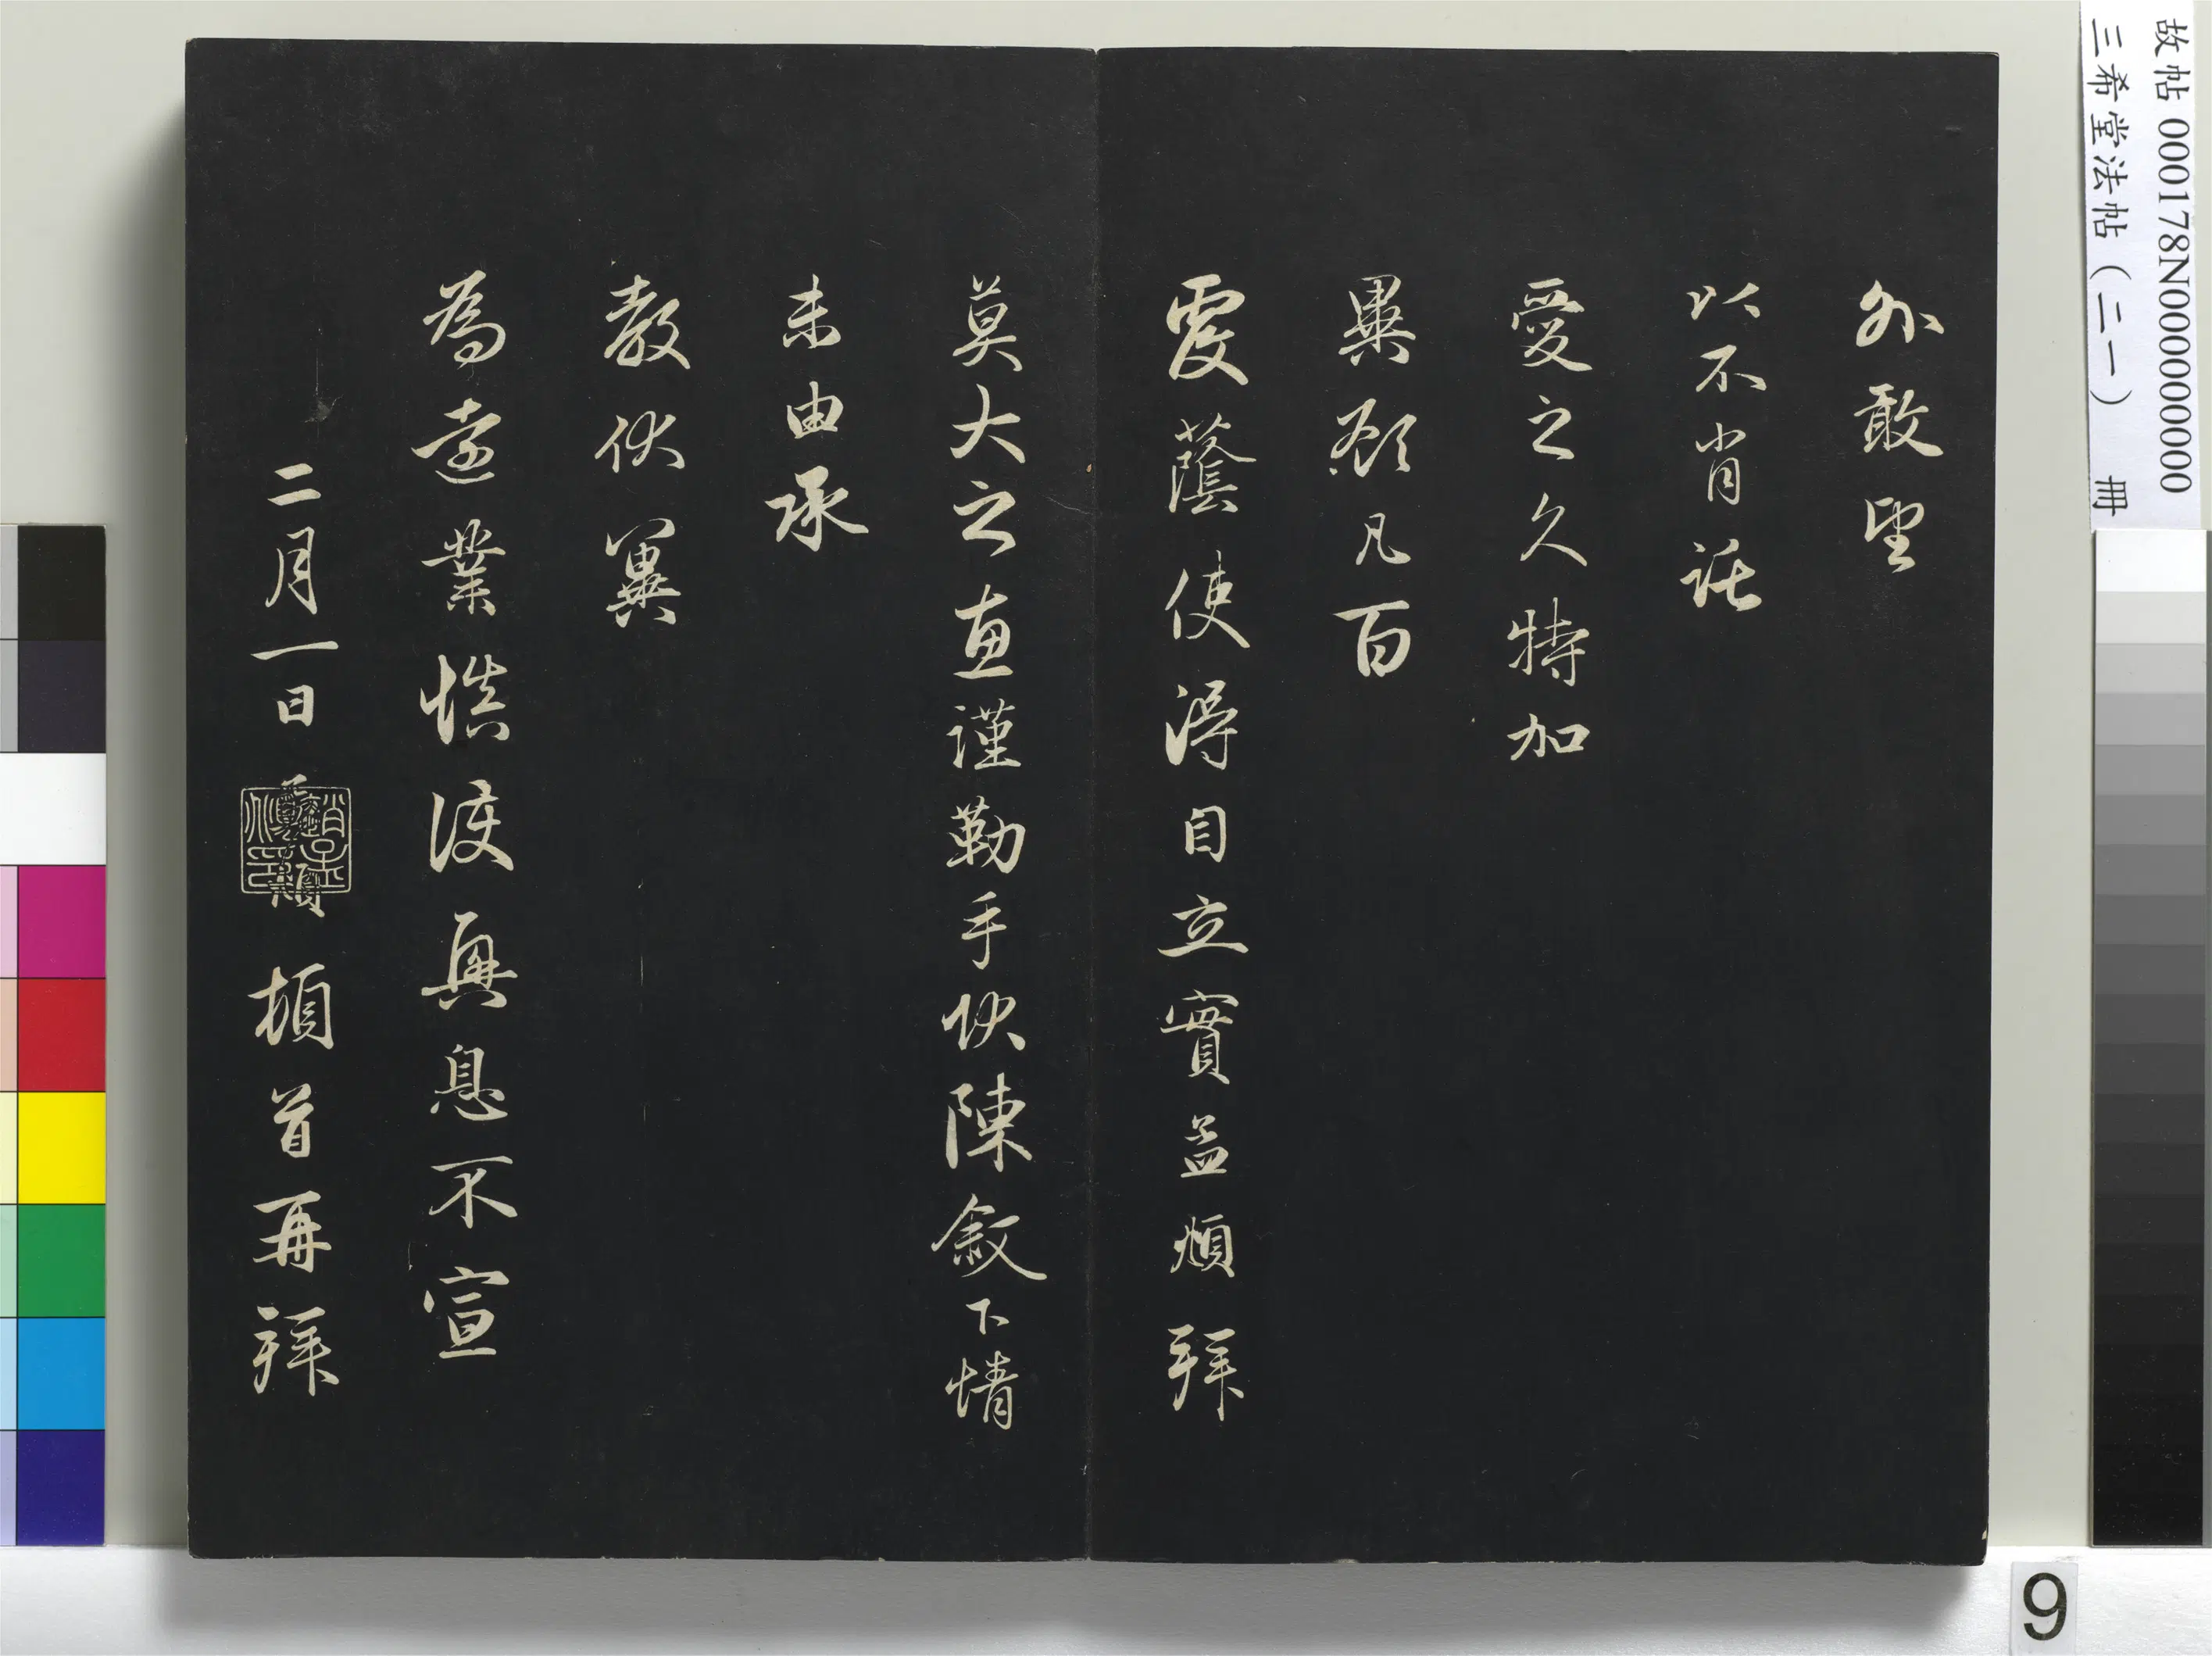 外敢望
以不肖託
愛之久特加
異顧凡百
覆蔭使得自立實孟頫拜
莫大之惠謹勒手狀陳敘下情
未由承
教伏冀
為遠業慎護興息不宣
二月一日孟頫頓首再拜
故帖 000178N000000000
三希堂法帖（二一） 冊
9